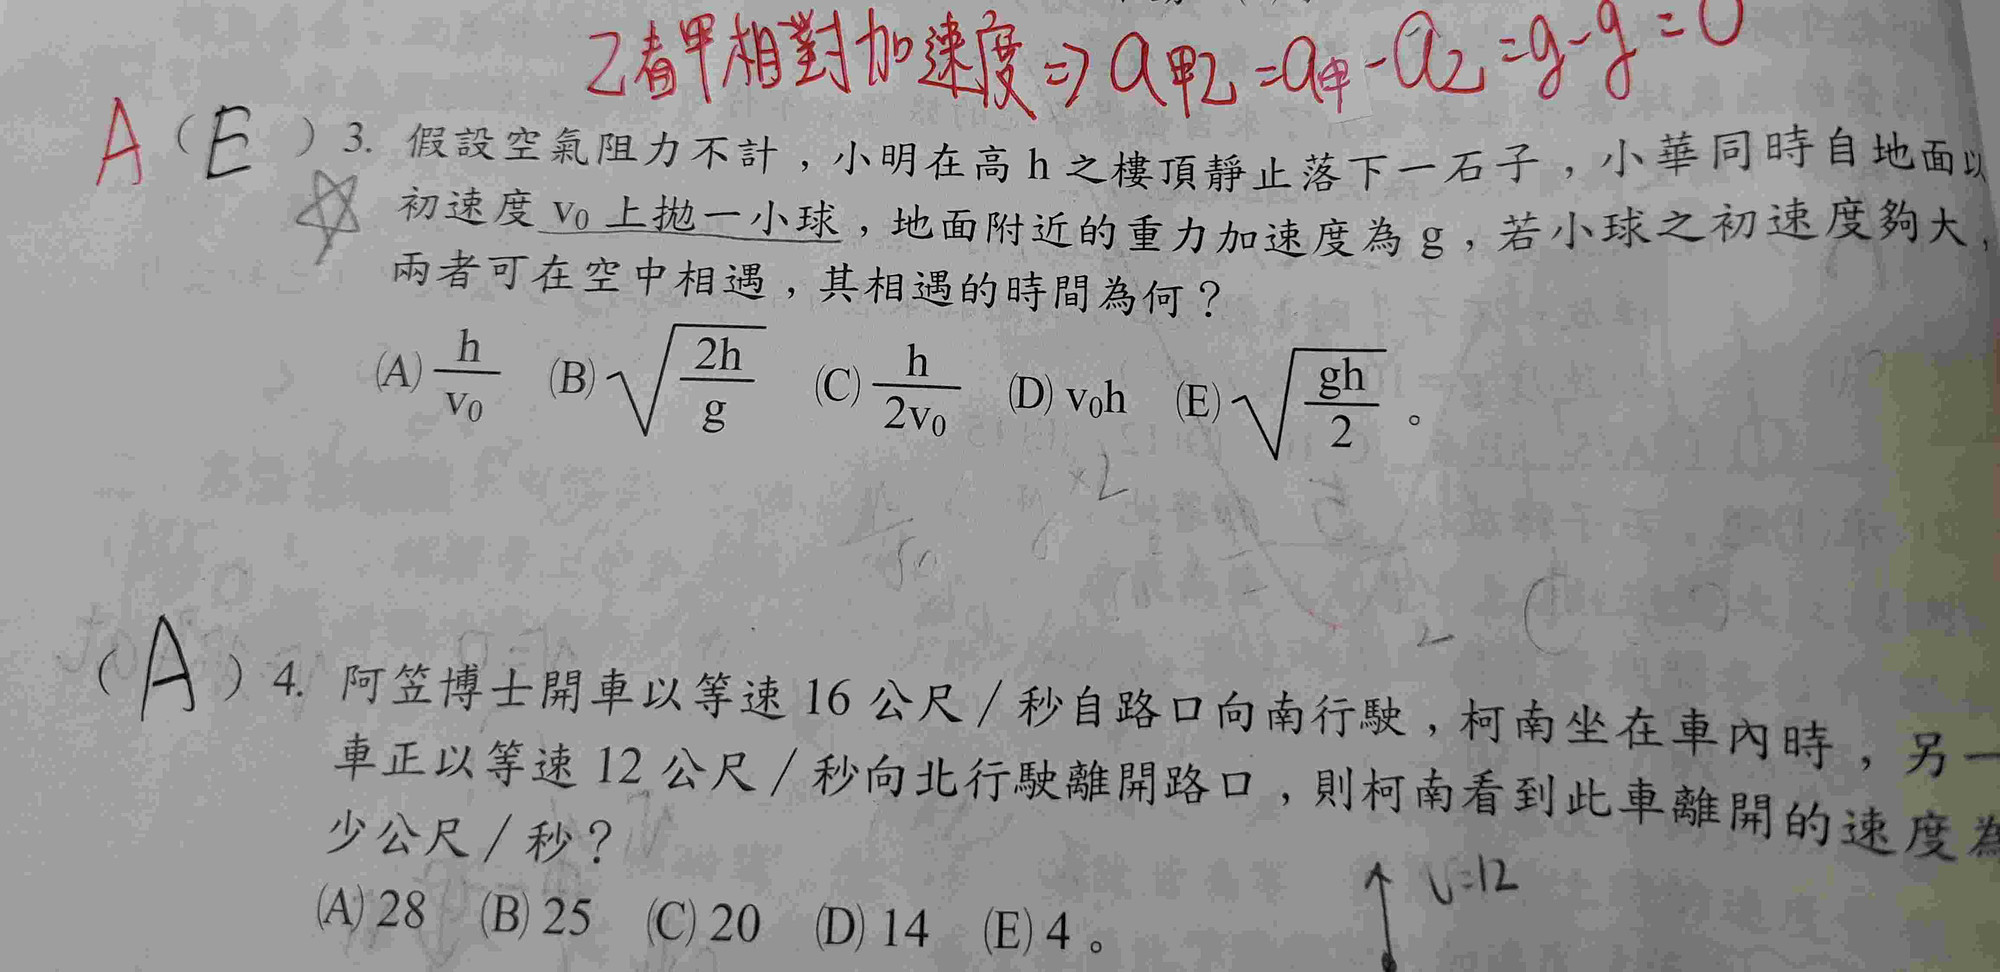 乙看甲相對加速度⇒a甲乙=a甲-a乙=g-g=0
A (E) 3. 假設空氣阻力不計，小明在高 h 之樓頂靜止落下一石子，小華同時自地面以
初速度 v₀ 上拋一小球，地面附近的重力加速度為 g，若小球之初速度夠大，
兩者可在空中相遇，其相遇的時間為何？
(A) h/v₀ (B) √(2h/g) (C) h/2v₀ (D) v₀h (E) √(gh/2)。
×2
(A) 4. 阿笠博士開車以等速 16 公尺／秒自路口向南行駛，柯南坐在車內時，另一
車正以等速 12 公尺／秒向北行駛離開路口，則柯南看到此車離開的速度為
少公尺／秒？
V=12
(A) 28 (B) 25 (C) 20 (D) 14 (E) 4。